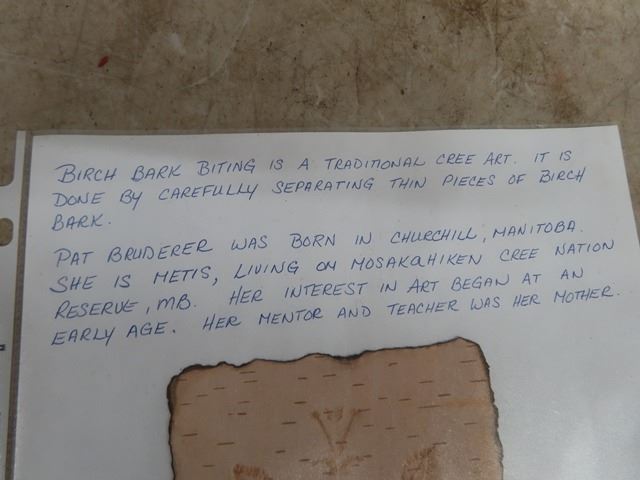 BIRCH BARK BITING IS A TRADITIONAL CREE ART. IT IS
DONE BY CAREFULLY SEPARATING THIN PIECES OF BIRCH
BARK.
PAT BRUDERER WAS BORN IN CHURCHILL, MANITOBA.
SHE IS METIS, LIVING ON MOSAKAHIKEN CREE NATION
RESERVE, MB. HER INTEREST IN ART BEGAN AT AN
EARLY AGE. HER MENTOR AND TEACHER WAS HER MOTHER.